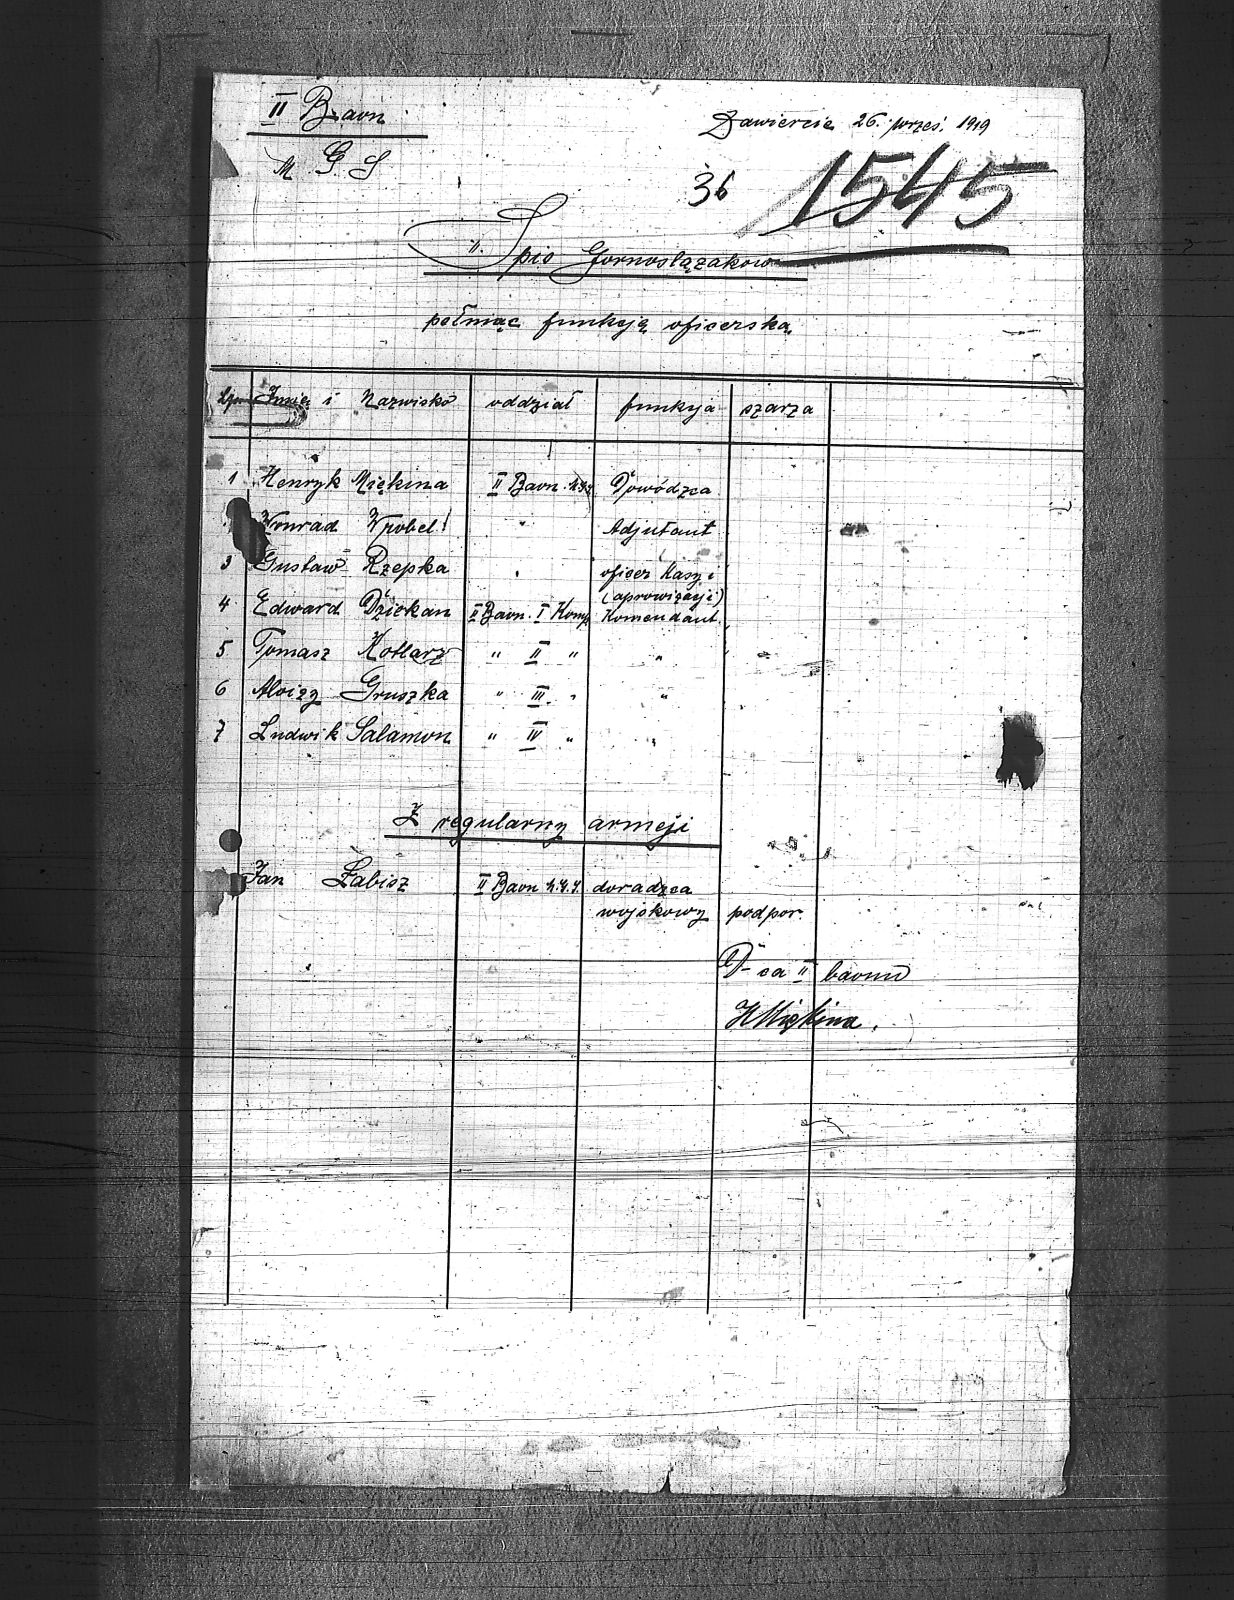 II Baon
M G S
Zawiercie 26. wrześ. 1919
36 1545
Spis Gornoslązakow
pełniąc funkcją oficerską
Lp. Imię i Nazwisko oddział funkcja szarza
1 Henryk Miękina II Baon Dowódzca
Konrad Wrobel Adjutant
3 Gustaw Rzepka oficer Kasy i
(aprowizacji)
4 Edward Dziekan II Baon. I Komp Komendant.
5 Tomasz Kotlarz " II " "
6 Aloizy Gruszka " III. " "
7 Ludwik Salamon " IV " "
Z regularny armeji
Jan Łabisz II Baon doradzca
wojskowy podpor.
D-ca II baonu
HMiękina.